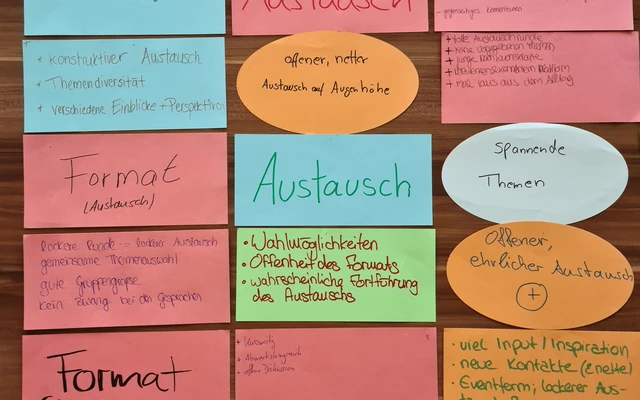 Austausch
- gegenseitiges kennenlernen
+ konstruktiver Austausch
+ Themendiversität
+ verschiedene Einblicke + Perspektiven
offener, netter
Austausch auf Augenhöhe
+ tolle Austauschrunde
+ keine vorgegebenen Themen
+ junge
+ mal raus aus dem Alltag
Format
(Austausch)
Austausch
Spannende
Themen
lockere Runde → lockerer Austausch
gemeinsame Themenauswahl
gute Gruppengröße
kein zwang bei den Gesprächen
• Wahlmöglichkeiten
• Offenheit des Formats
• wahrscheinliche Fortführung
des Austauschs
Offener,
ehrlicher Austausch
+
Format
+ Kurzweilig
+ Abwechslungsreich
+ offene Diskussion
• viel Input / Inspiration
• neue Kontakte (& nette)
• Eventform; lockerer Aus-